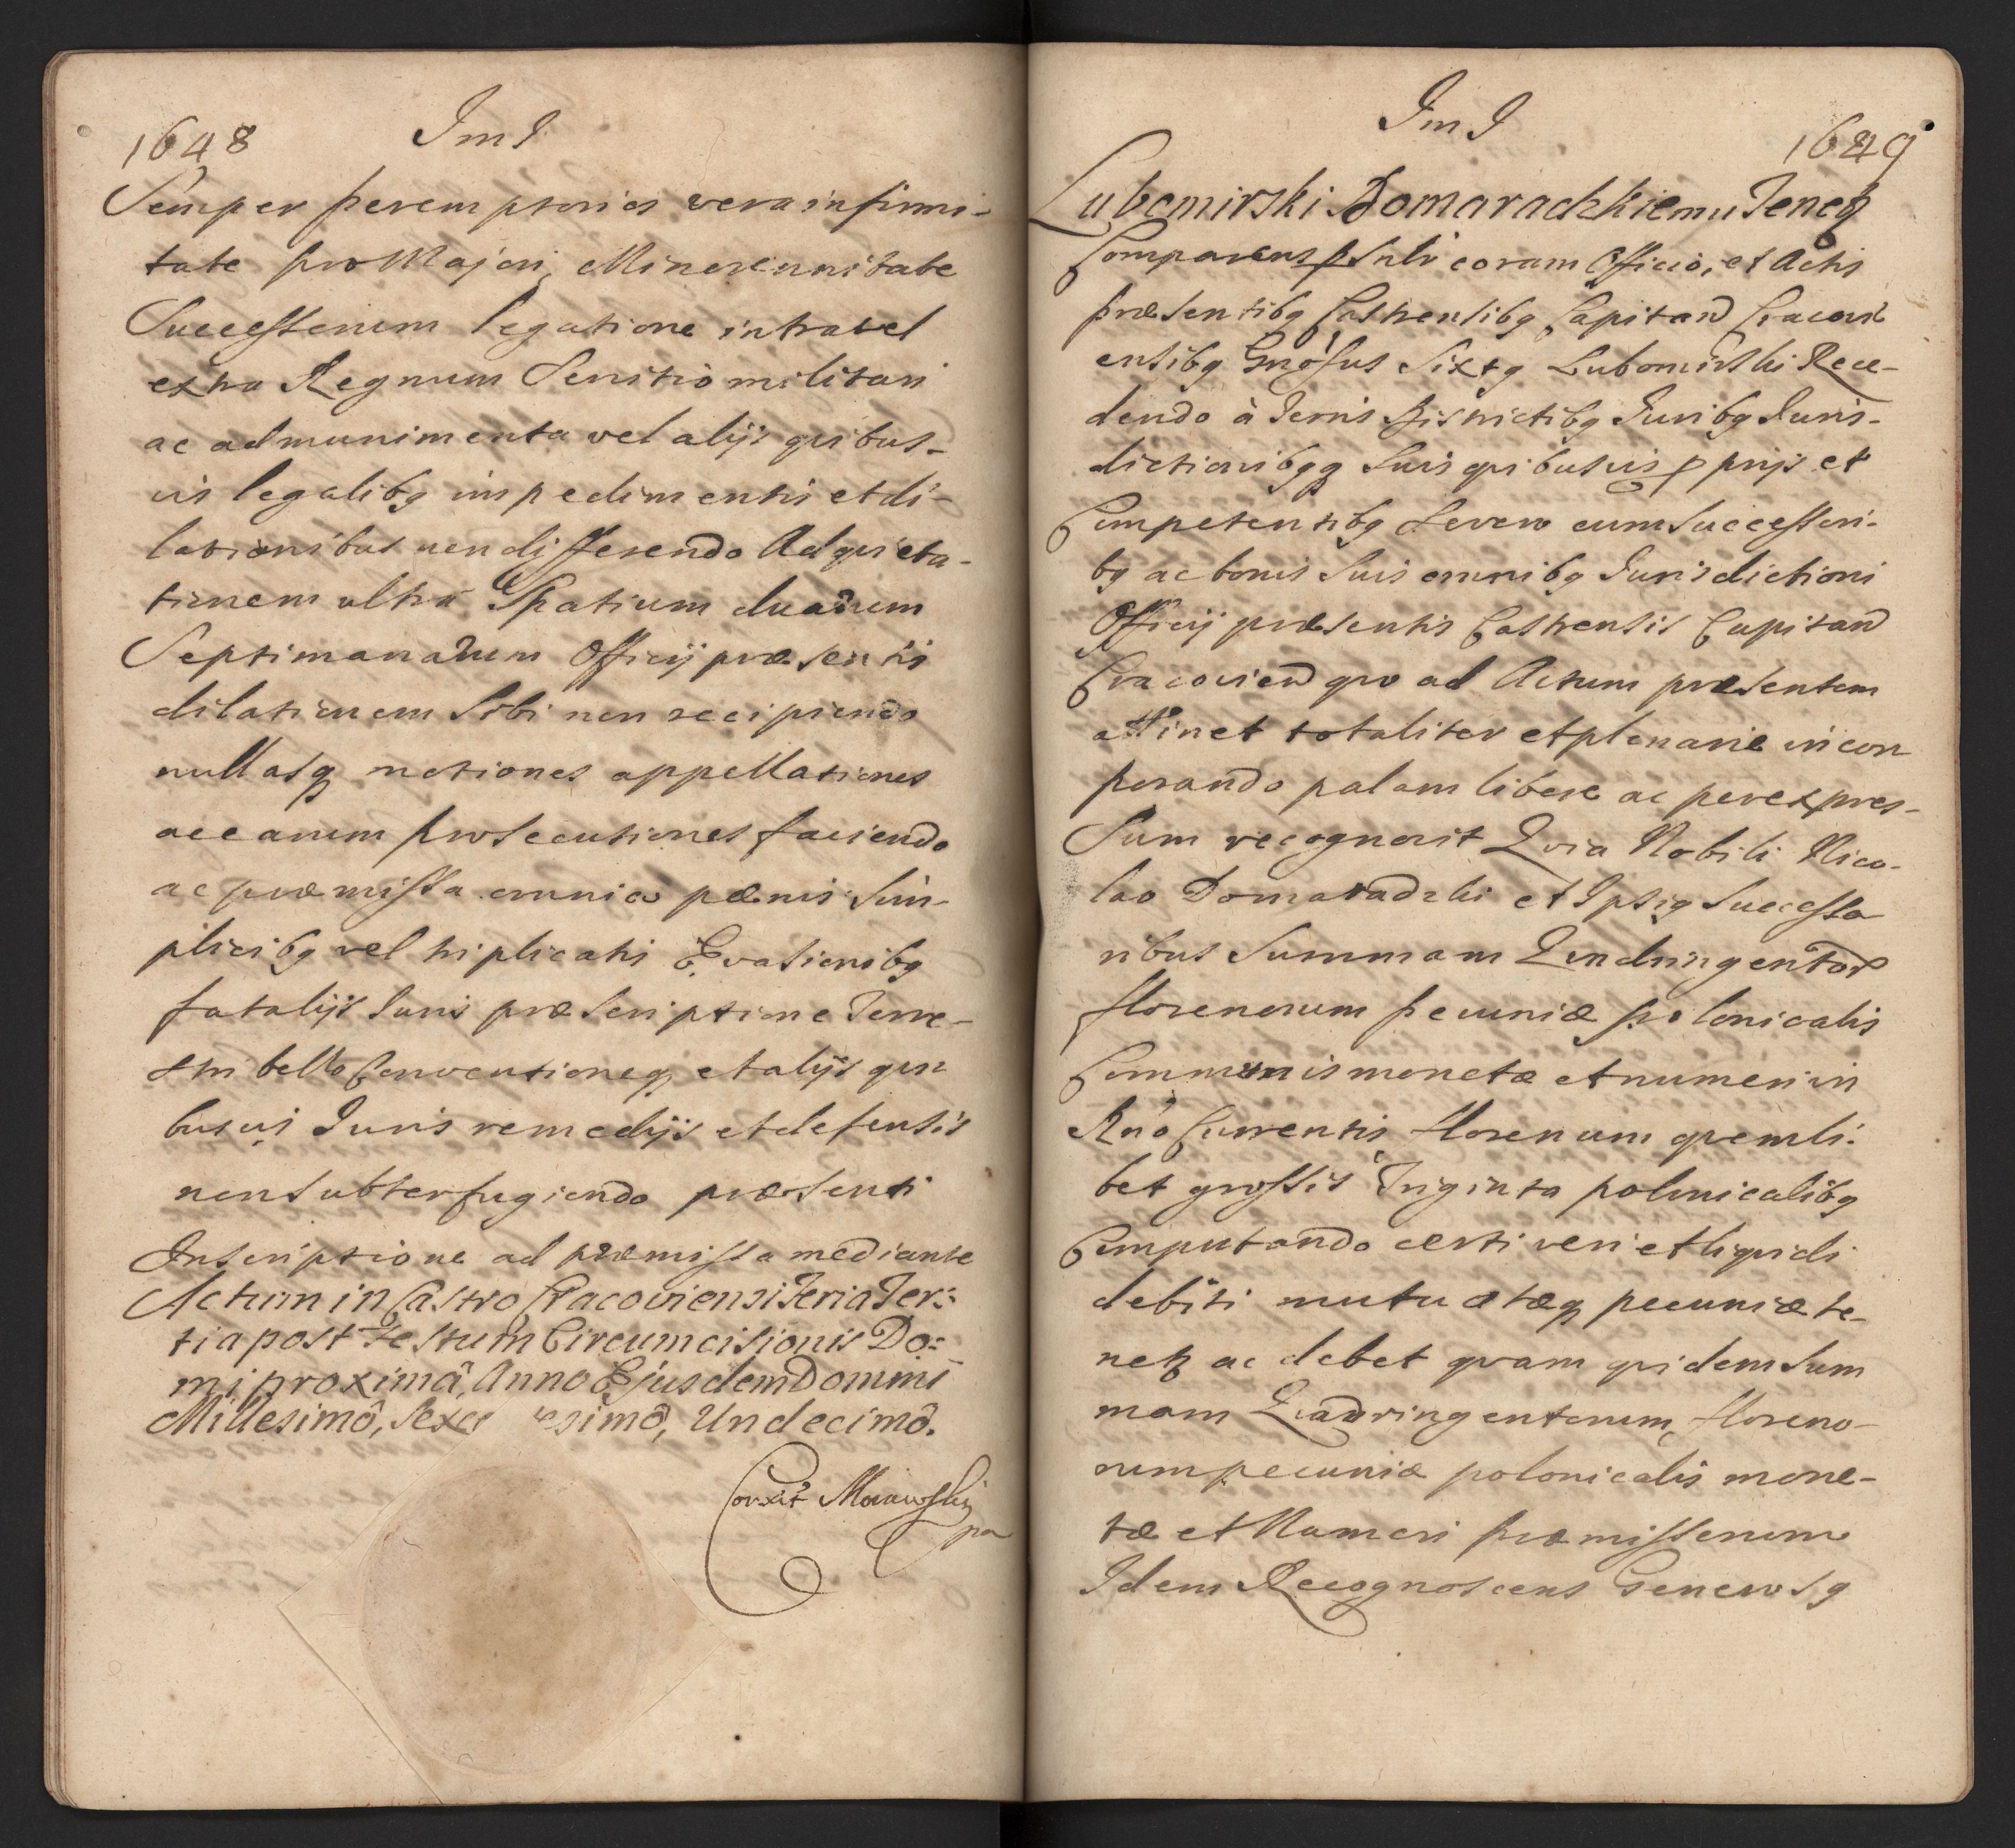 1648
ImI
Semper peremptorios vera infirmi-
tate pro Majori, Minorennitate
Successorum legatione intra vel
extra Regnum Servitio militari
ac ad munimenta vel alijs quibus-
vis legalibq impedimentis et di-
lationibus non differendo Ad quieta-
tionem ultra Spatium duarum
Septimanarum Officij præsentis
dilationem Sibi non recipiendo
nullasq motiones appellationes
ac earum prosecutiones faciendo
ac præmissa omnia pænis Sim-
plicibq vel triplicatis Evationibq
fatalijs Juris præscriptione Terre-
stri bello Conventioneq et alijs qui
busvis Juris remedijs et defensis
non Subterfugiendo præsenti
Inscriptione ad præmissa mediante
Actum in Castro Cracoviensi Feria Ter=
tia post Festum Circumcisionis Do=
mi proximâ, Anno Ejusdem Domini
Millesimô, Sexc esimô, Undecimô.
Corxit Morawski
ImI
1649
Lubomirski Domaradzkiemu Teneq
Comparens psnlr coram Officio, et Actis
præsentibq Castrensibq Capitan Cracovi
ensibq Gnosus Sixtq Lubomirski Rece-
dendo à Terris Districtibq Juribq Juris-
dictionibqq Suis quibusvis pprijs et
Competentibq Severo cum Successori-
bq ac bonis Suis omnibq Jurisdictioni
Officij præsentis Castrensis Capitan
Cracovien quo ad Actum præsentem
attinet totaliter et plenarie incor
porando palam libere ac per expres-
Sum recognovit Quia Nobili Nico-
lao Domaradzki et Ipsiq Successo
ribus Summam Quadringentor
florenorum pecuniæ polonicalis
Communis monetæ et numeri in
Rno Currentis florenum quemli-
bet grossis Triginta polonicalibq
Computando certi veri et liquidi
debiti mutuatæq pecuniæ te-
netq ac debet quam quidem Sum
mam Quadringentorum floreno-
rum pecuniæ polonicalis mone-
tæ et Numeri præmissorum
Idem Recognoscens Generosq